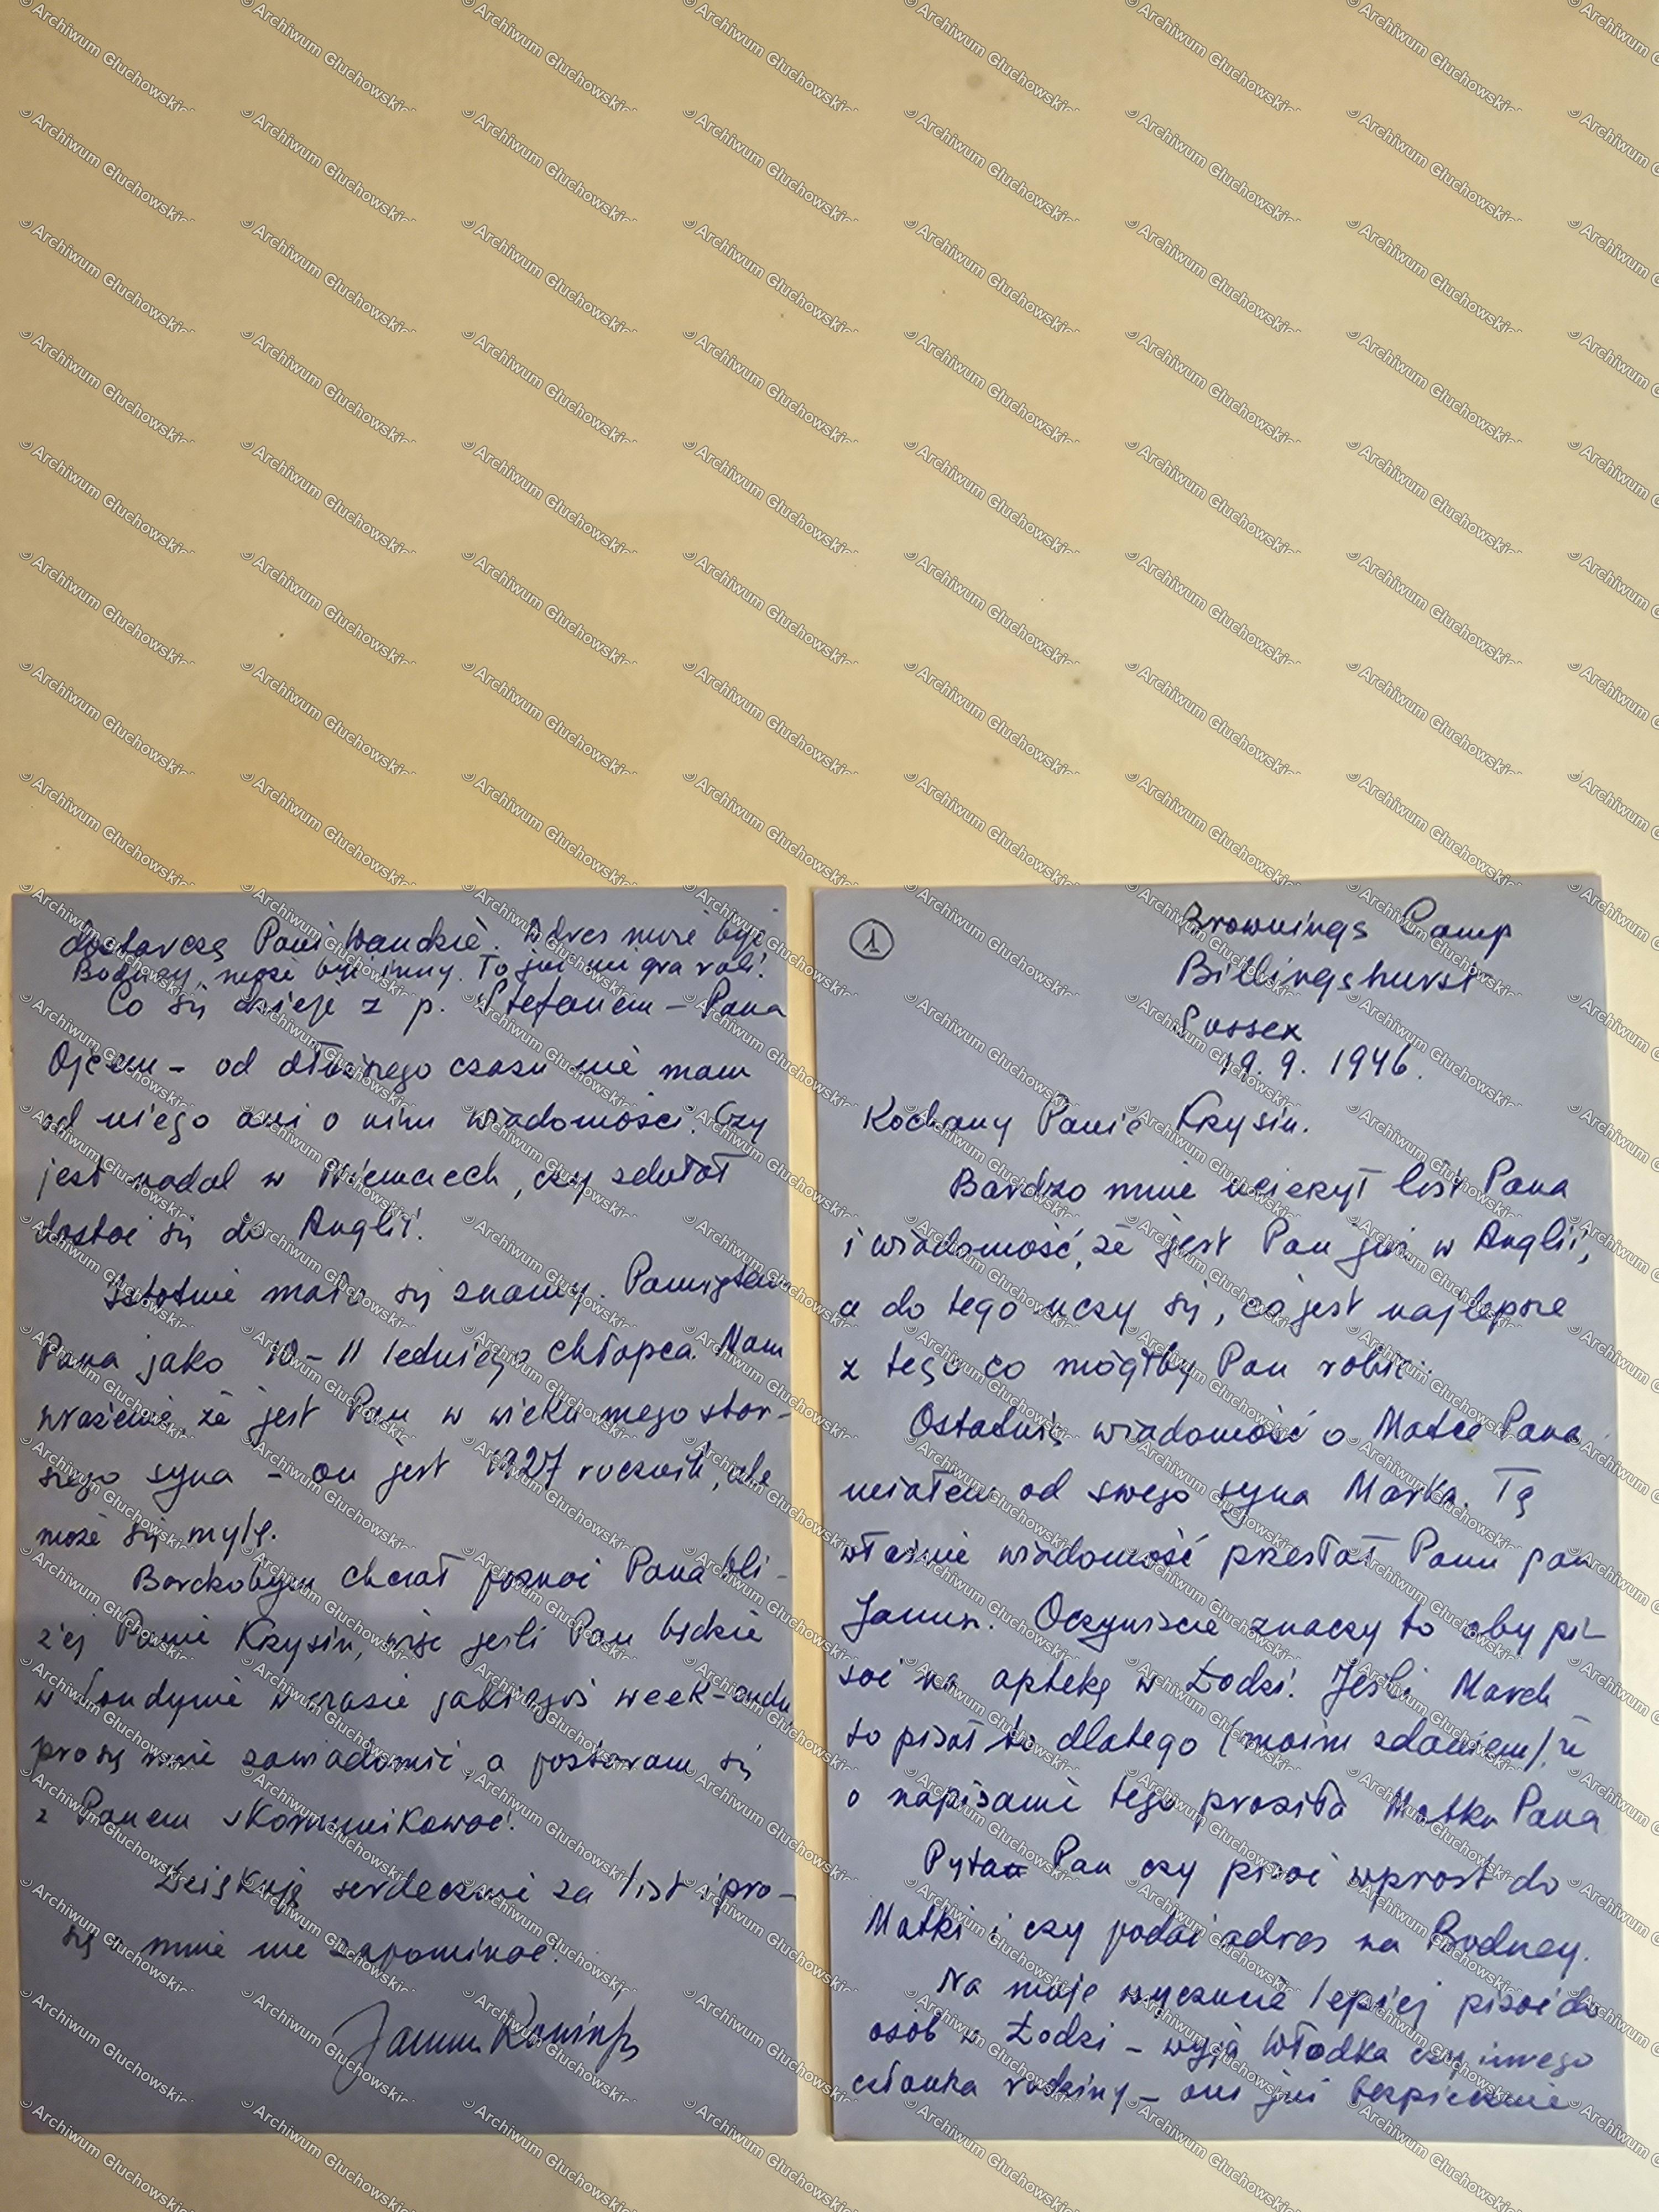 ①
Brownings Camp
Billingshurst
Sussex
19. 9. 1946.
Kochany Panie Krysin.
Bardzo mnie ucieszył list Pana
i wiadomość, że jest Pan już w Anglii,
a do tego uczy się, co jest najlepsze
z tego co mógłby Pan robić.
Ostatnią wiadomość o Matce Pana
miałem od swego syna Marka. Tę
właśnie wiadomość przesłał Panu pan
Janusz. Oczywiście znaczy to aby pi-
sać na aptekę w Łodzi. Jeśli Marek
to pisał to dlatego (moim zdaniem) że
o napisanie tego prosiła Matka Pana
Pyta Pan czy pisać wprost do
Matki i czy podać adres na Bodney.
Na moje wyczucie lepiej pisać do
osób w Łodzi – wuja Włodka czy innego
członka rodziny – oni już bezpiecznie
dostarczą Pani Wandzie. Adres może być
Bodney, może być inny. To już nie gra roli!
Co się dzieje z p. Stefanem – Pana
Ojcem – od dłuższego czasu nie mam
od niego ani o nim wiadomości. Czy
jest nadal w Niemczech, czy zdołał
dostać się do Anglii.
Istotnie mało się znamy. Pamiętam
Pana jako 10 – 11 letniego chłopca. Mam
wrażenie, że jest Pan w wieku mego star-
szego syna – on jest 1927 rocznik, ale
może się mylę.
Bardzobym chciał poznać Pana bli-
żej Panie Krysin, więc jeśli Pan będzie
w Londynie w czasie jakiegoś week-endu,
proszę mnie zawiadomić, a postaram się
z Panem skomunikować.
Dziękuję serdecznie za list i pro-
szę o mnie nie zapominać.
© Archiwum Głuchowskich